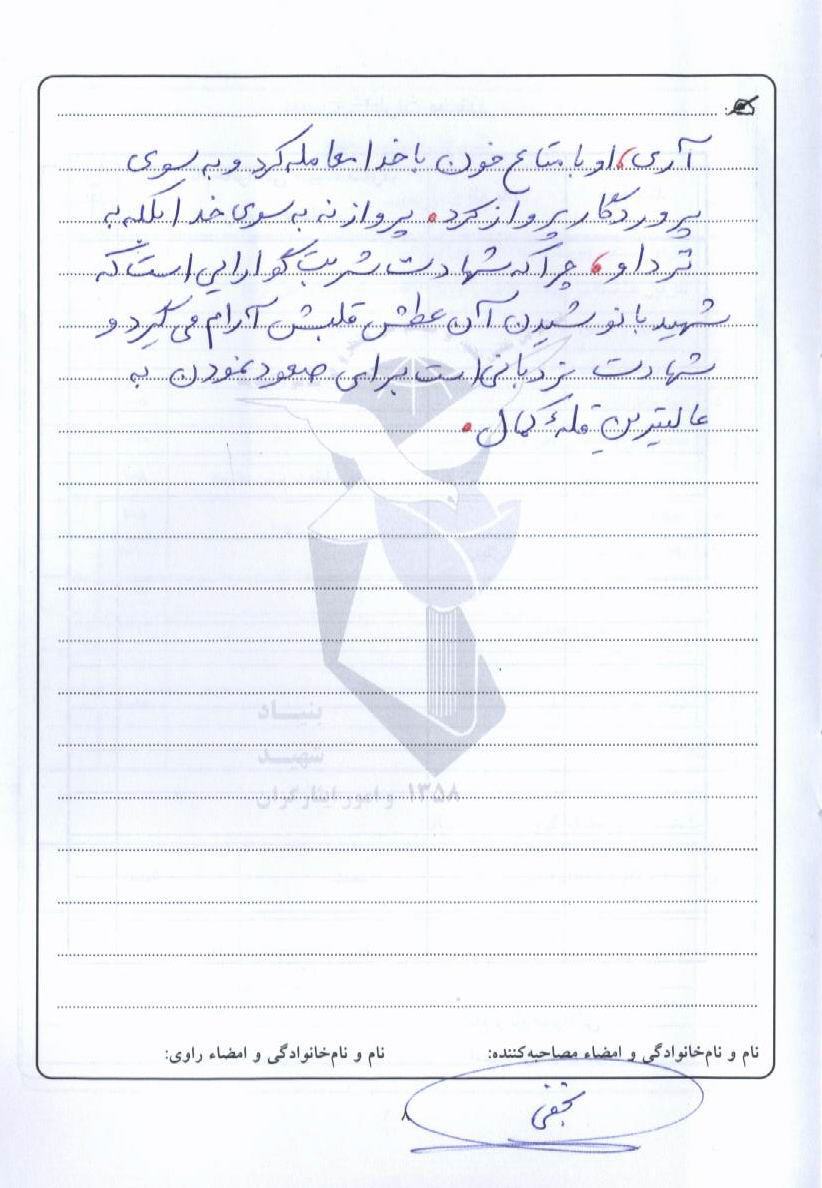 آری، او با متاع خون با خدا معامله کرد و به سوی
پروردگار پرواز کرد. پرواز نه به سوی خدا بلکه به
نزد او، چرا که شهادت شربت گوارایی است که
شهید با نوشیدن آن عطش قلبش آرام می گیرد و
شهادت نردبانی است برای صعود نمودن به
عالیترین قلهٔ کمال.
بنیاد
شهید
۱۳۵۸ و امور ایثارگران
نام و نام‌خانوادگی و امضاء مصاحبه‌کننده:
نام و نام‌خانوادگی و امضاء راوی:
نجفی
۸